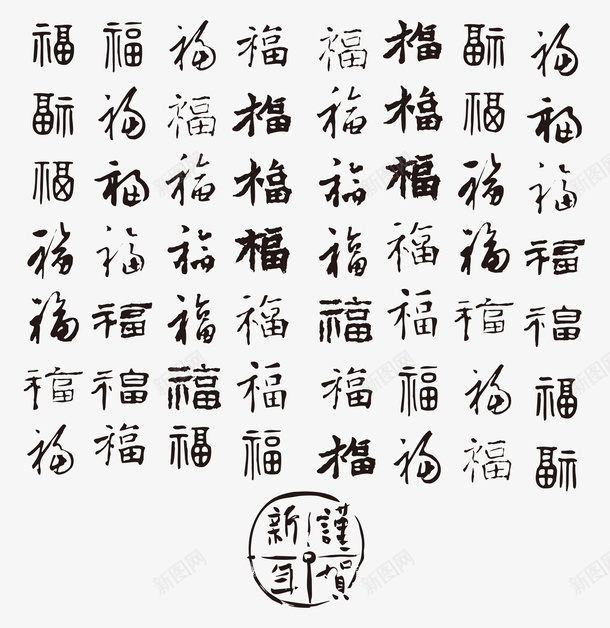 福福福福福福福福
福福福福福福福福
福福福福福福福福
福福福福福福福福
福福福福福福福福
福福福福福福福福
福福福福福福福福
謹賀
新年